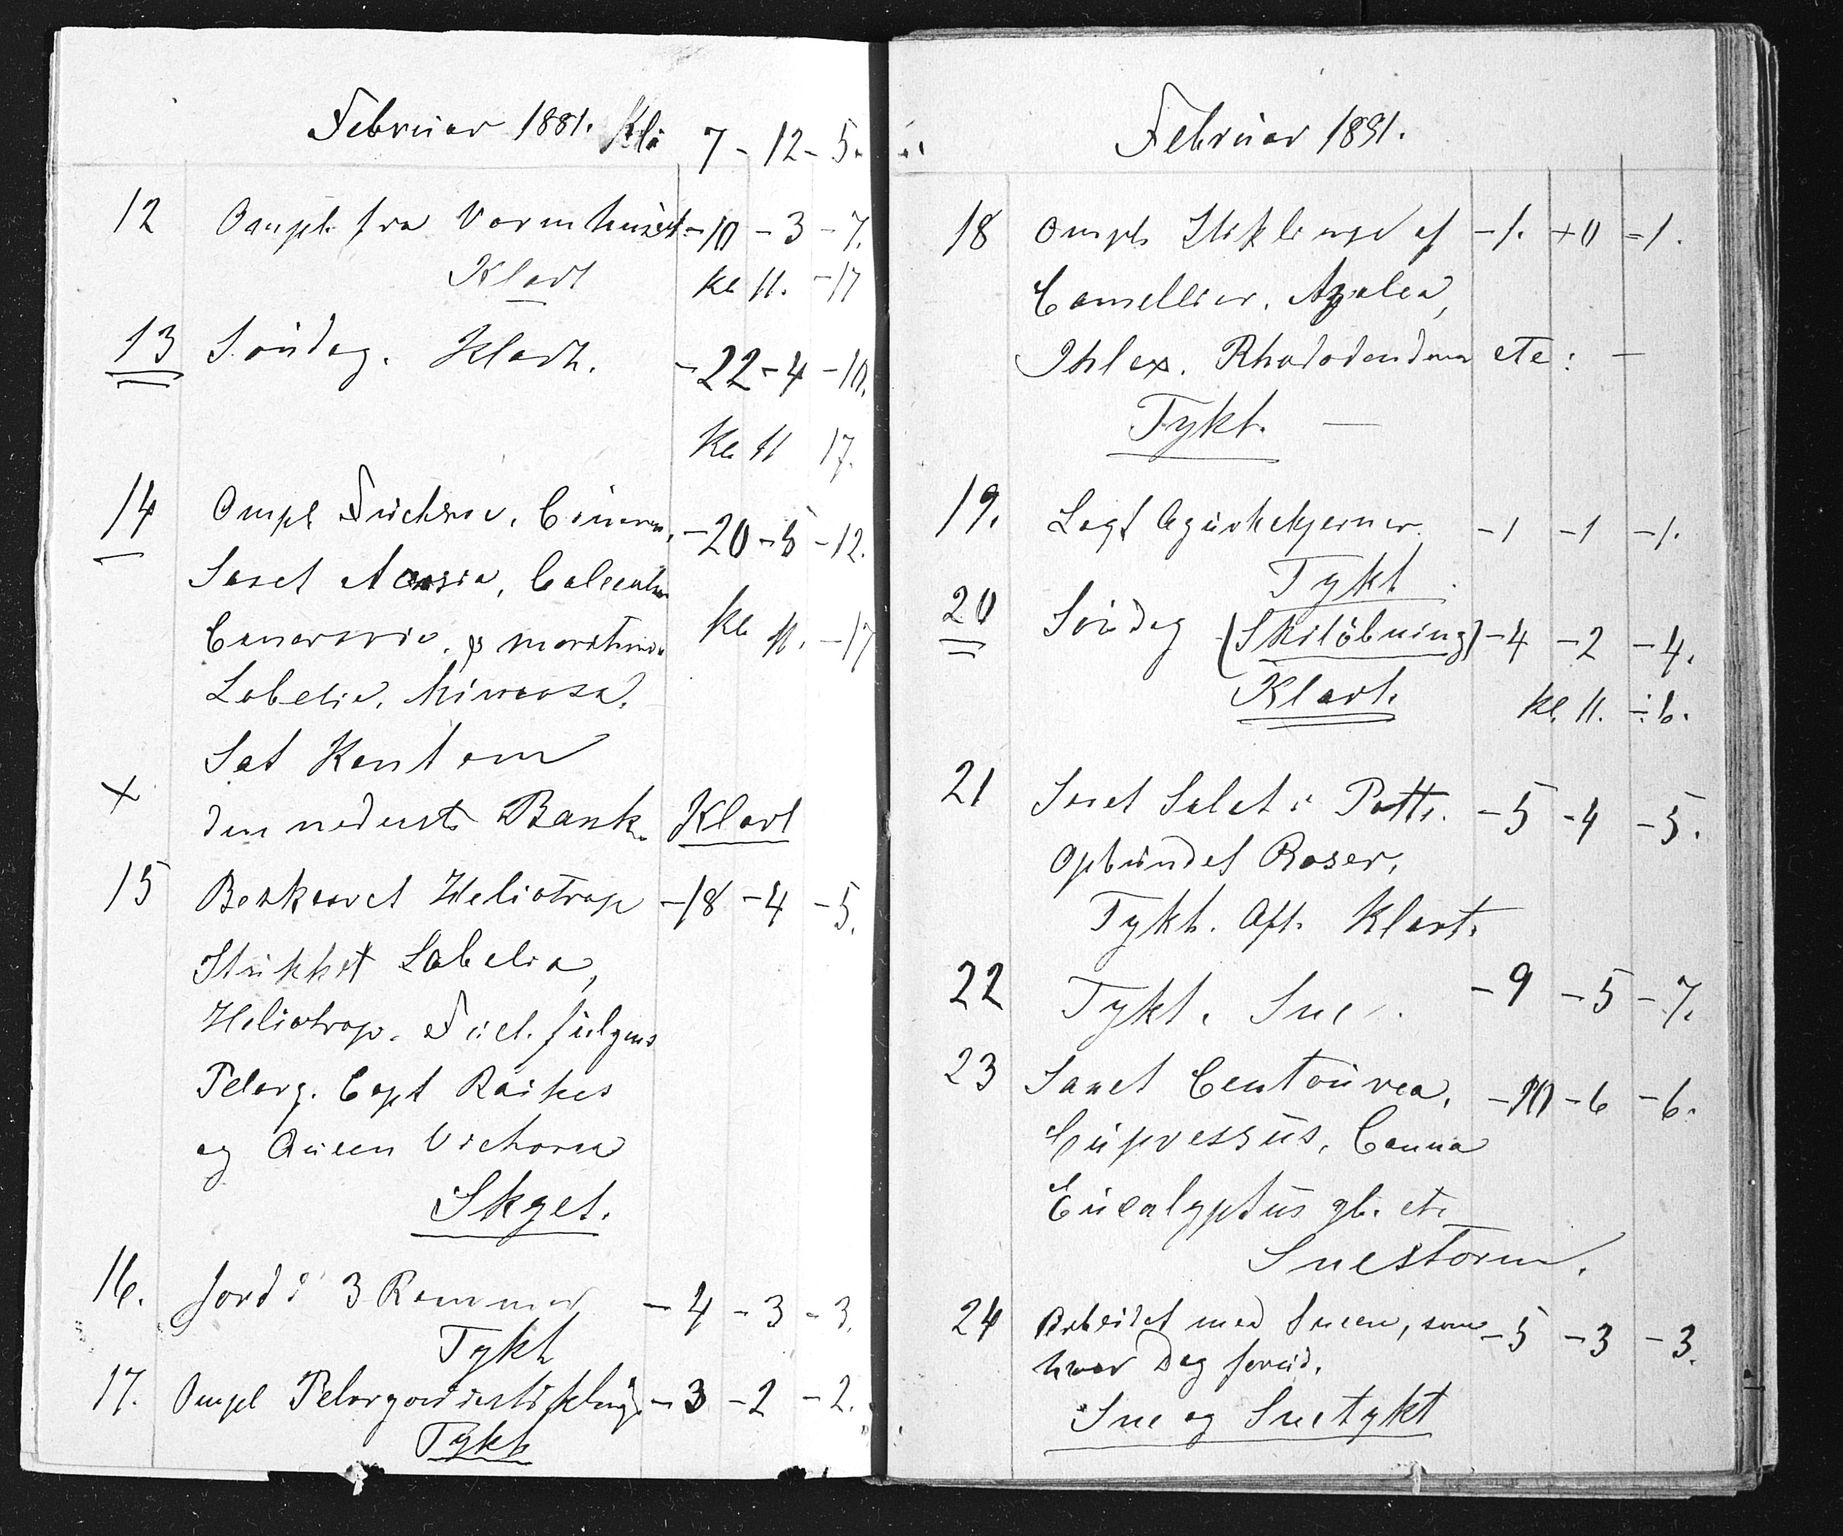 Februar 1881. Kl: 7 - 12 - 5.
12 Ompl. fra Varmhuset. -10 -3 -7.
Klart kl 11. -17
13 Søndag. Klart. -22 -4 -10.
Kl 11 17.
14 Ompl Fuchsie, -20 -5 -12.
Saaet Acasia,
kl 11. -17
Lobelie, Mimosa.
Sat Rent om
x den nederste Bænk. Klart
15 Heliotrop -18 -4 -5.
Stukket Lobelia,
Heliotrop. fulgens
Pelarg. Capt Raikes
og Queen Victoria
Skyet.
16. Jord i 3 -4 -3 -3.
Tykt
17. Ompl -3 -2 -2.
Tykt
Februar 1881.
18 Ompl. Stiklinge af -1. +0 -1.
Camellier. Azalea,
Ihlex. Rhododendron etc: —
Tykt. —
19. Lagt Agurkekjerner. -1 -1 -1.
Tykt
20 Søndag (Skiløbning) -4 -2 -4.
Klart. kl. 11. ÷6.
21 Saaet Salat i Potte. -5 -4 -5.
Opbundet Roser.
Tykt. Aft. Klart.
22 Tykt. Sne. -9 -5 -7.
23 Saaet Centaurea, -10 -6 -6.
Cupressus, Canna
Eucalyptus gl. etc
Snestorm.
24 Arbeidet med Sneen, som -5 -3 -3.
hver Dag forud.
Sne og Snetykt